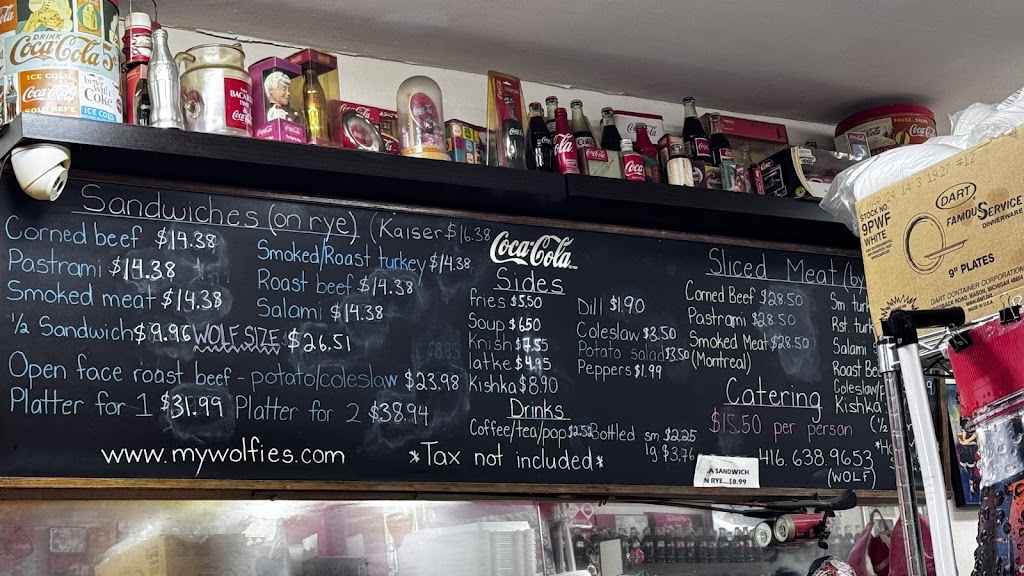 Sandwiches (on rye) (Kaiser $16.38
Corned beef $14.38
Pastrami $14.38
Smoked meat $14.38
Smoked/Roast turkey $14.38
Roast beef $14.38
Salami $14.38
1/2 Sandwich $9.96 WOLF SIZE $26.51
Open face roast beef - potato/coleslaw $23.98
Platter for 1 $31.99 Platter for 2 $38.94
www.mywolfies.com
*Tax not included*
Coca-Cola
Sides
fries $5.50
Soup $6.50
Knish $7.55
latke $4.45
Kishka $8.90
Dill $1.90
Coleslaw $3.50
Potato salad $3.50
Peppers $1.99
Drinks
Coffee/tea/pop $2.50 Bottled sm $2.25
lg $3.76
Sliced Meat (by
Corned Beef $28.50
Pastrami $28.50
Smoked Meat $28.50
(Montreal)
Sm turk
Rst turk
Salami
Roast Be
Coleslaw/
Kishka
(1/2
Catering
$15.50 per person
416.638.9653
(WOLF)
A SANDWICH
N RYE...$8.99
DRINK
Coca-Cola 5¢
ICE COLD
Coca-Cola
ICE COLD
BACARDI
Coca-Cola
STOCK NO.
9PWF
WHITE
DART
FAMOUS SERVICE
DINNERWARE
9" PLATES
DART CONTAINER CORPORATION
MADE IN U.S.A.